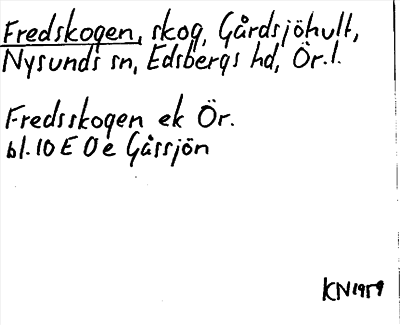 Fredskogen, skog, Gårdsjöhult,
Nysunds sn, Edsbergs hd, Ör.l.
Fredsskogen ek Ör.
bl. 10 E 0e Gåssjön
KN1959